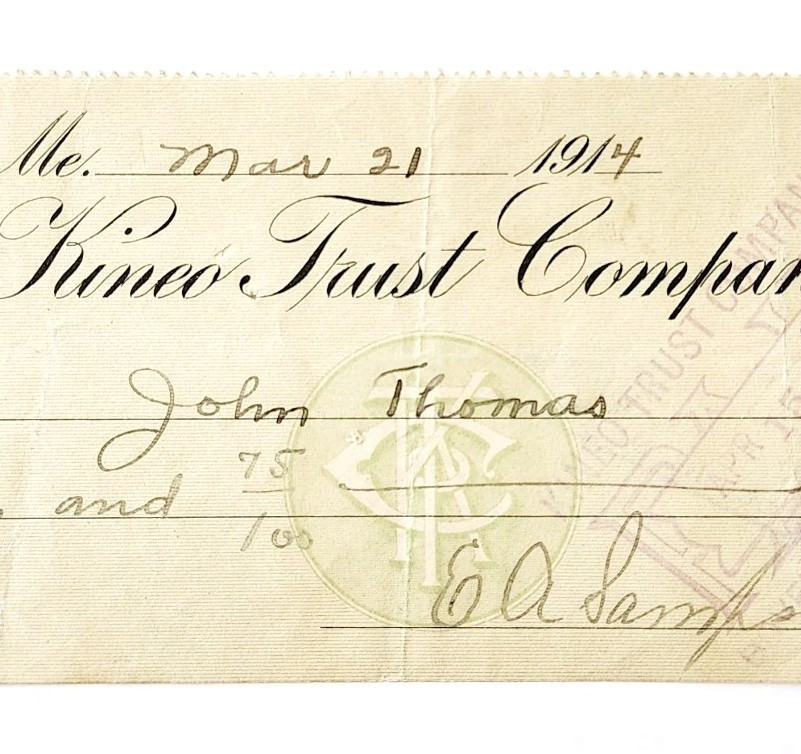 Me. Mar 21 1914
Kineo Trust Compan
John Thomas
and 75/100
E A Samps
KINEO TRUST COMPAN
APR 15